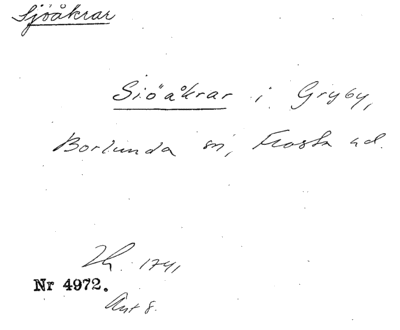 Sjöåkrar
Siöåkrar i Gryby,
Borlunda sn, Frosta hd.
Lh. 1741
Nr 4972.
Akt 8.